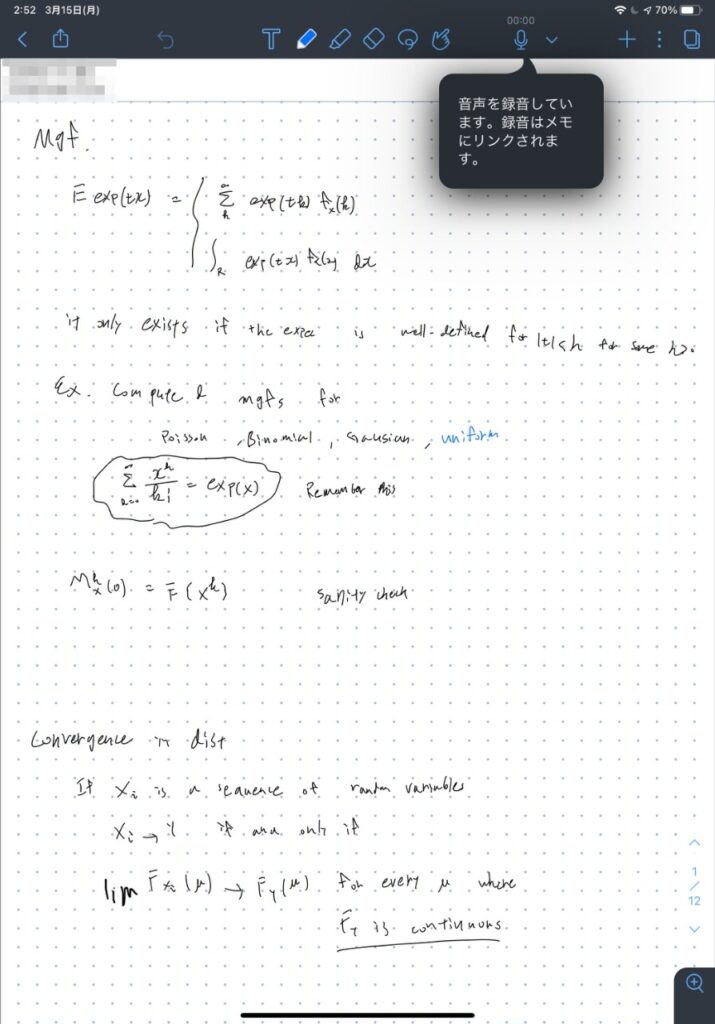 2:52 3月15日(月)
70%
T
00:00
音声を録音してい
ます。録音はメモ
にリンクされま
す。
Mgf.
E exp(tx) = { ∞∑k exp(tk) fx(k)
∫R exp(tx) fx(x) dx
it only exists if the expe is well-defined for |t|<h for some h>0
Ex. Compute mgfs for
Poisson, Binomial, Gaussian, uniform
∞∑k=0 x^k/k! = exp(x) Remember this
M^k_x(0) = E(X^k) sanity check
Convergence in dist
If Xi is a sequence of random variables
Xi → Y if and only if
lim F_Xi(μ) → F_Y(μ) for every μ where
F_Y is continuous
1
/
12